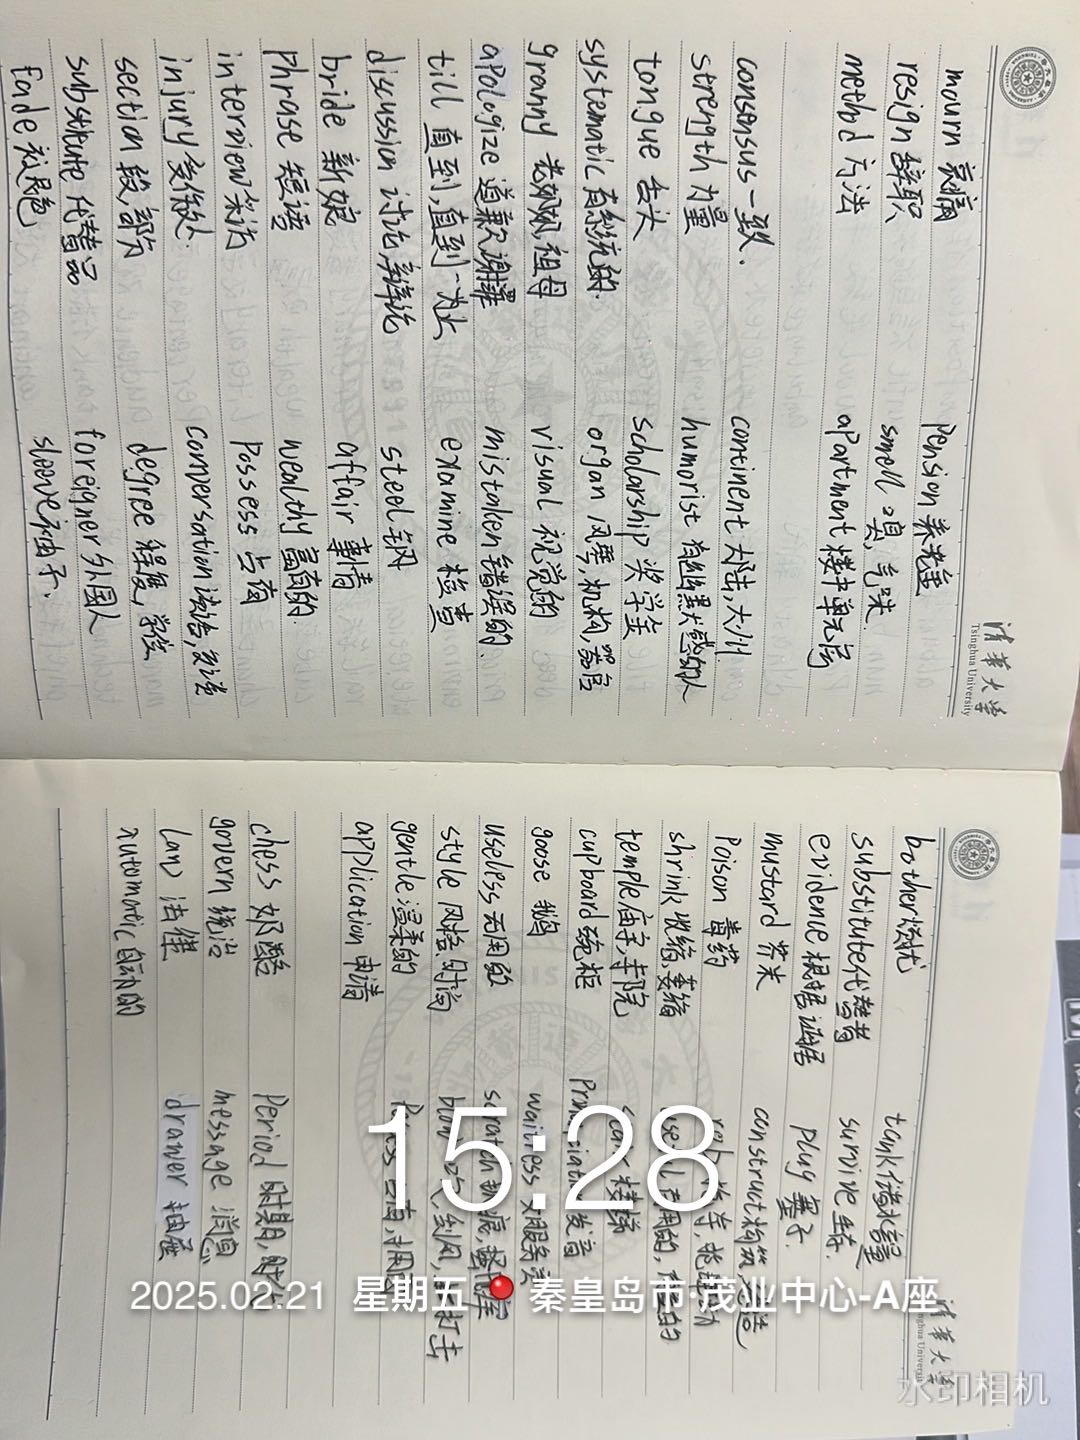 清华大学
Tsinghua University
mourn 哀痛 pension 养老金
resign 辞职 smell 嗅,气味.
method 方法 apartment 楼中单元房
consensus 一致. continent 大陆,大洲
strength 力量 humorist 有幽默感的人
tongue 舌头 scholarship 奖学金
systematic 有系统的. organ 风琴,机构,器官
granny 老奶奶,祖母 visual 视觉的
apologize 道歉,谢罪 mistaken 错误的.
till 直到,直到…为止 examine 检查
discussion 讨论,辩论 steel 钢
bride 新娘 affair 事情
phrase 短语 wealthy 富有的.
interview 采访 possess 占有
injury 受伤处. conversation 谈话,会话
section 段,部分 degree 程度,学位
substitute 代替品 foreigner 外国人
fade 褪色 sleeve 袖子.
清华大学
Tsinghua University
bother 烦扰 tank 储水量
substitute 代替者 survive 生存.
evidence 根据 证据 plug 塞子.
mustard 芥末 construct 构筑,建造
poison 毒药
shrink 收缩,萎缩
temple 庙宇,寺院 楼梯
cupboard 碗柜 发音
goose 鹅 waitress 女服务员
useless 无用的 scratch
style 风格,时尚 blow
gentle 温柔的 占有,拥有
application 申请
chess 奶酪 period 时期,时代
govern 统治 message 消息
law 法律 drawer 抽屉
automatic 自动的
15:28
2025.02.21 星期五 秦皇岛市·茂业中心-A座
水印相机